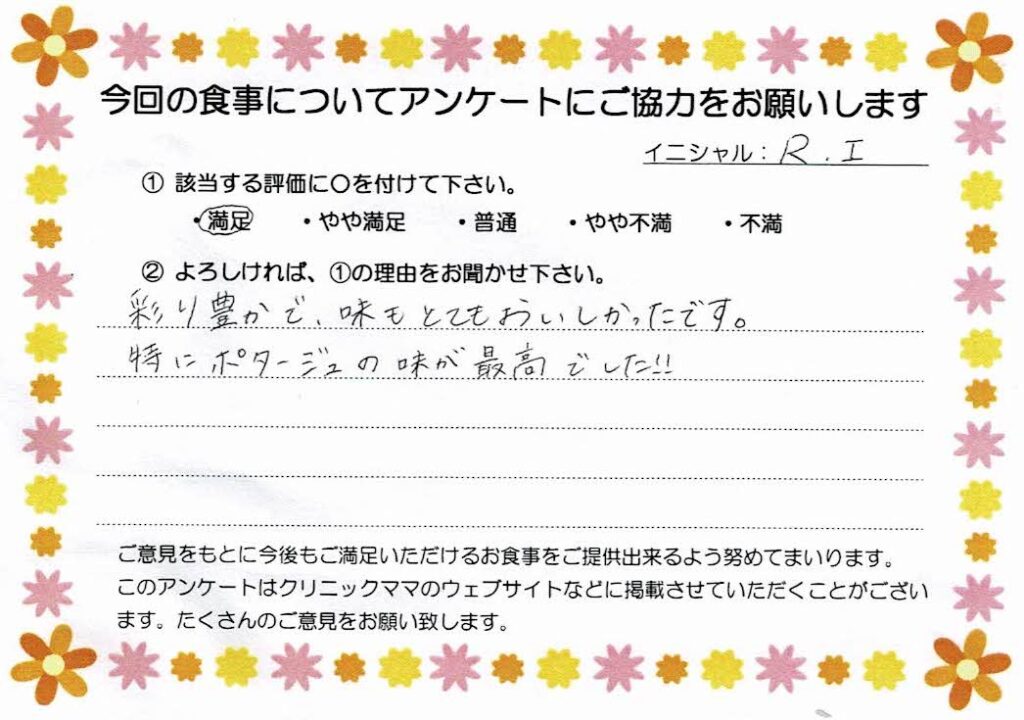 今回の食事についてアンケートにご協力をお願いします
イニシャル：R．I
① 該当する評価に○を付けて下さい。
・満足 ・やや満足 ・普通 ・やや不満 ・不満
② よろしければ、①の理由をお聞かせ下さい。
彩り豊かで、味もとてもおいしかったです。
特にポタージュの味が最高でした!!
ご意見をもとに今後もご満足いただけるお食事をご提供出来るよう努めてまいります。
このアンケートはクリニックママのウェブサイトなどに掲載させていただくことがござい
ます。たくさんのご意見をお願い致します。